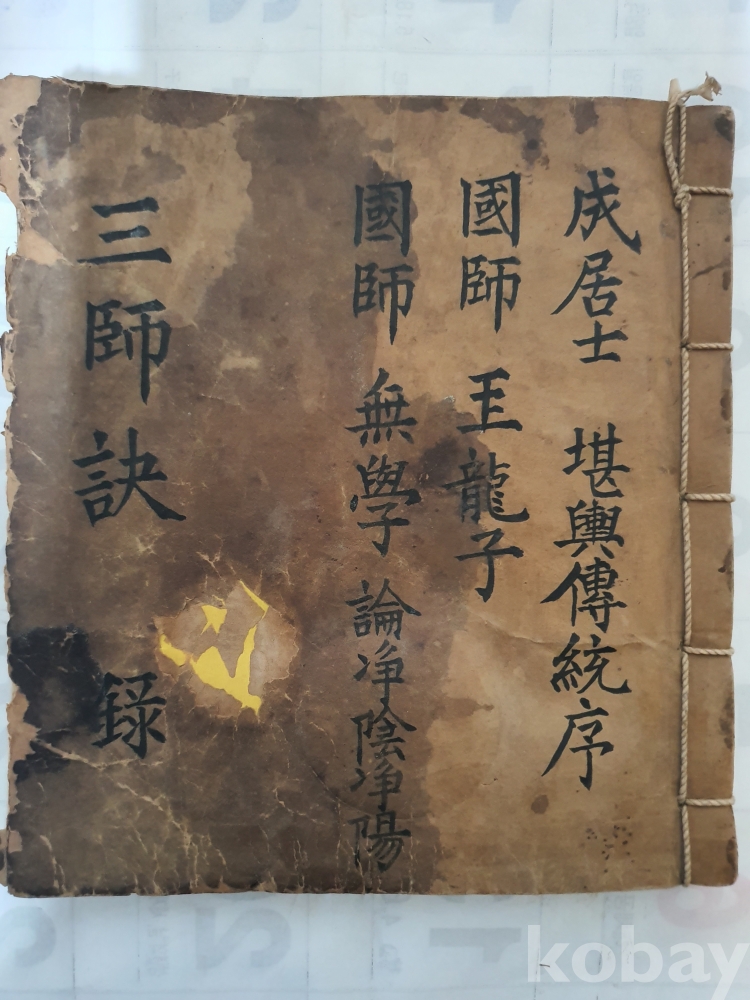 成居士 堪輿傳統序
國師 王龍子
國師 無學 論净陰净陽
三師訣 録
kobay